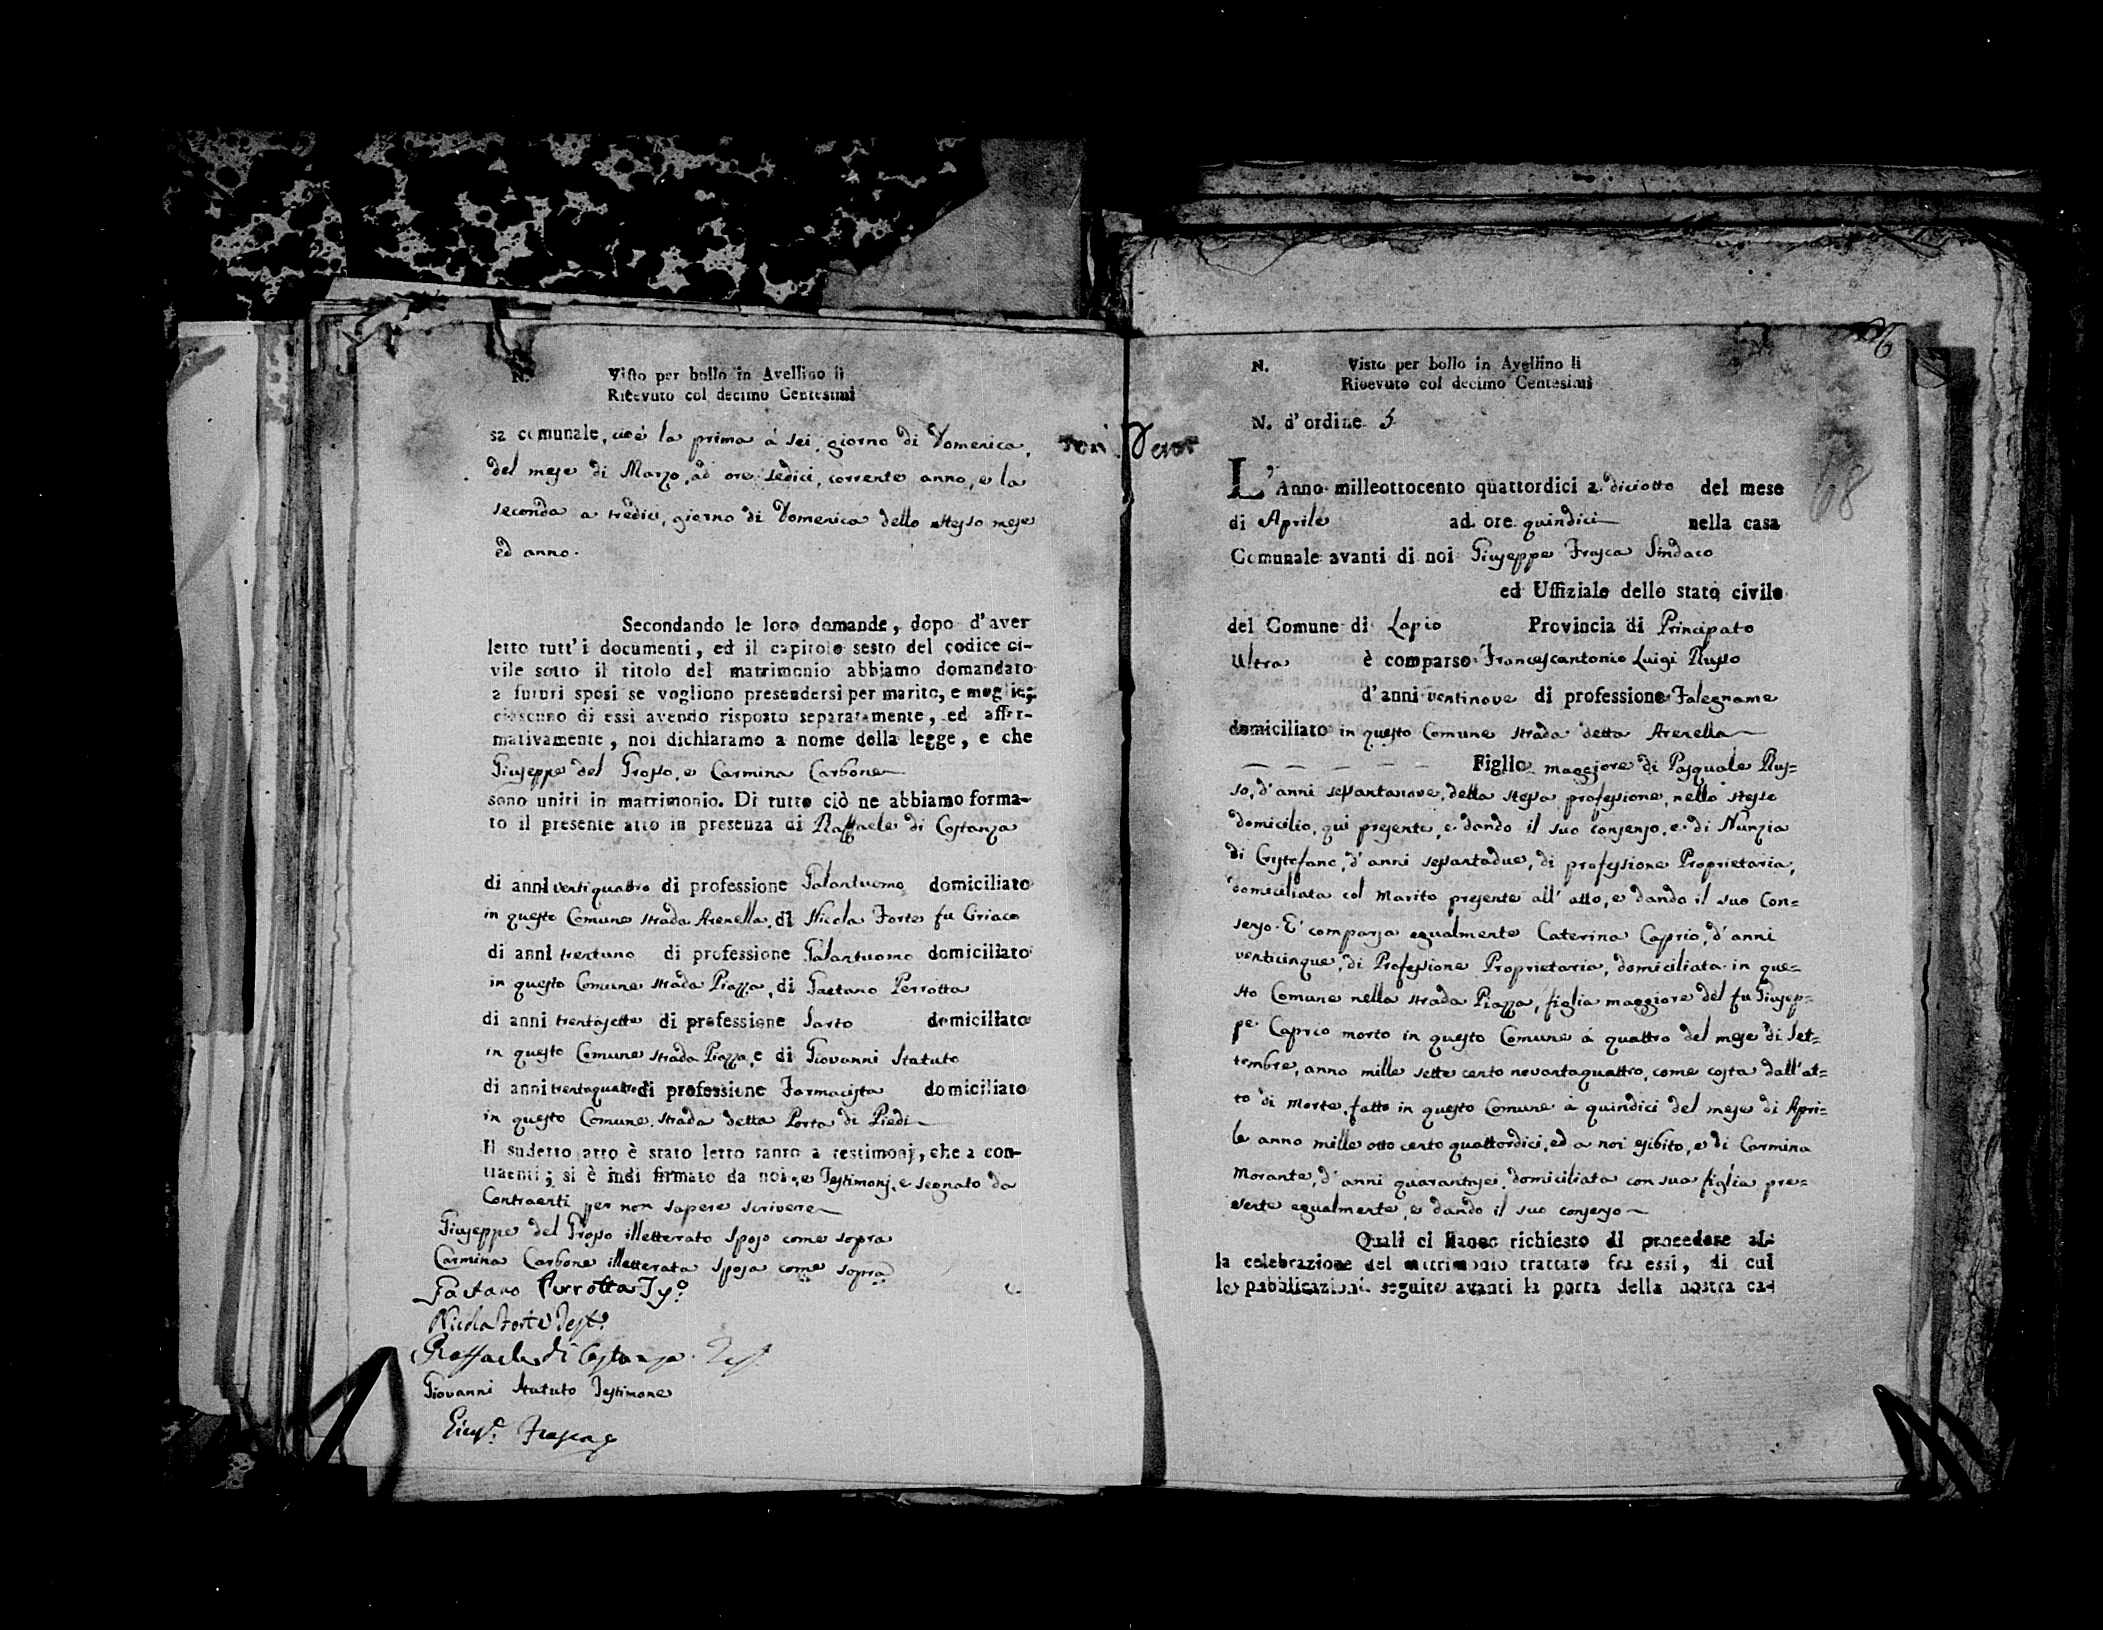 N. Visto per bollo in Avellino li
Ricevuto col decimo Centesimi
sa comunale, cioè la prima à sei, giorno di Domenica,
del mese di Marzo, ad ore sedici, corrente anno, e la
seconda a tredici, giorno di Domenica dello stesso mese
ed anno.
Secondando le loro domande, dopo d'aver
letto tutt'i documenti, ed il capitolo sesto del codice ci-
vile sotto il titolo del matrimonio abbiamo domandato
a futuri sposi se vogliono prestendersi per marito, e moglie;
ciascuno di essi avendo risposto separatamente, ed affer-
mativamente, noi dichiaramo a nome della legge, e che
Giuseppe del Grosso, e Carmina Carbone
sono uniti in matrimonio. Di tutto ciò ne abbiamo forma-
to il presente atto in presenza di Raffaele di Costanza
di anni ventiquattro di professione Galantuomo domiciliato
in questo Comune strada Arenella, di Nicola Forte fu Ciriaco
di anni trentuno di professione Galantuomo domiciliato
in questo Comune strada Piazza, di Gaetano Perrotta
di anni trentasette di professione Sarto domiciliato
in questo Comune strada Piazza, e di Giovanni Statuto
di anni trentaquattro di professione Farmacista domiciliato
in questo Comune strada detta Porta di Piedi
Il sudetto atto è stato letto tanto a testimonj, che a con-
traenti; si è indi firmato da noi, e Testimonj, e segnato da
Contraenti per non sapere scrivere
Giuseppe del Grosso illetterato sposo come sopra
Carmina Carbone illetterata sposa come sopra
Gaetano Perrotta
Nicola Forte Test.
Raffaele di Costanza Test.
Giovanni Statuto Testimone
Giusp. Frasca
N. Visto per bollo in Avellino li
Ricevuto col decimo Centesimi
N. d'ordine 5
68
L'Anno milleottocento quattordici a diciotto del mese
di Aprile ad ore quindici nella casa
Comunale avanti di noi Giuseppe Frasca Sindaco
ed Uffiziale dello stato civile
del Comune di Lapio Provincia di Principato
Ultra è comparso Francescantonio Luigi Russo
d'anni ventinove di professione Falegname
domiciliato in questo Comune strada detta Arenella
Figlio maggiore di Pasquale Rus=
so, d'anni sessantanove, della stessa professione, nello stesso
domicilio, qui presente, e dando il suo consenso, e di Nunzia
di Cristofano, d'anni sessantadue, di professione Proprietaria,
domiciliata col Marito presente all'atto, e dando il suo Con=
senso. E' comparsa egualmente Caterina Caprio, d'anni
venticinque, di Professione Proprietaria, domiciliata in que=
sto Comune nella strada Piazza, figlia maggiore del fu Giusep=
pe Caprio morto in questo Comune à quattro del mese di Set=
tembre, anno mille sette cento novantaquattro, come costa dall'at=
to di morte, fatto in questo Comune à quindici del mese di Apri=
le anno mille otto cento quattordici, ed a noi esibito, e di Carmina
Morante, d'anni quarantasei, domiciliata con sua figlia pre=
sente egualmente, e dando il suo consenso
Quali ci hanno richiesto di procedere al-
la celebrazione del matrimonio trattato fra essi, di cui
le pubblicazioni seguite avanti la porta della nostra ca-